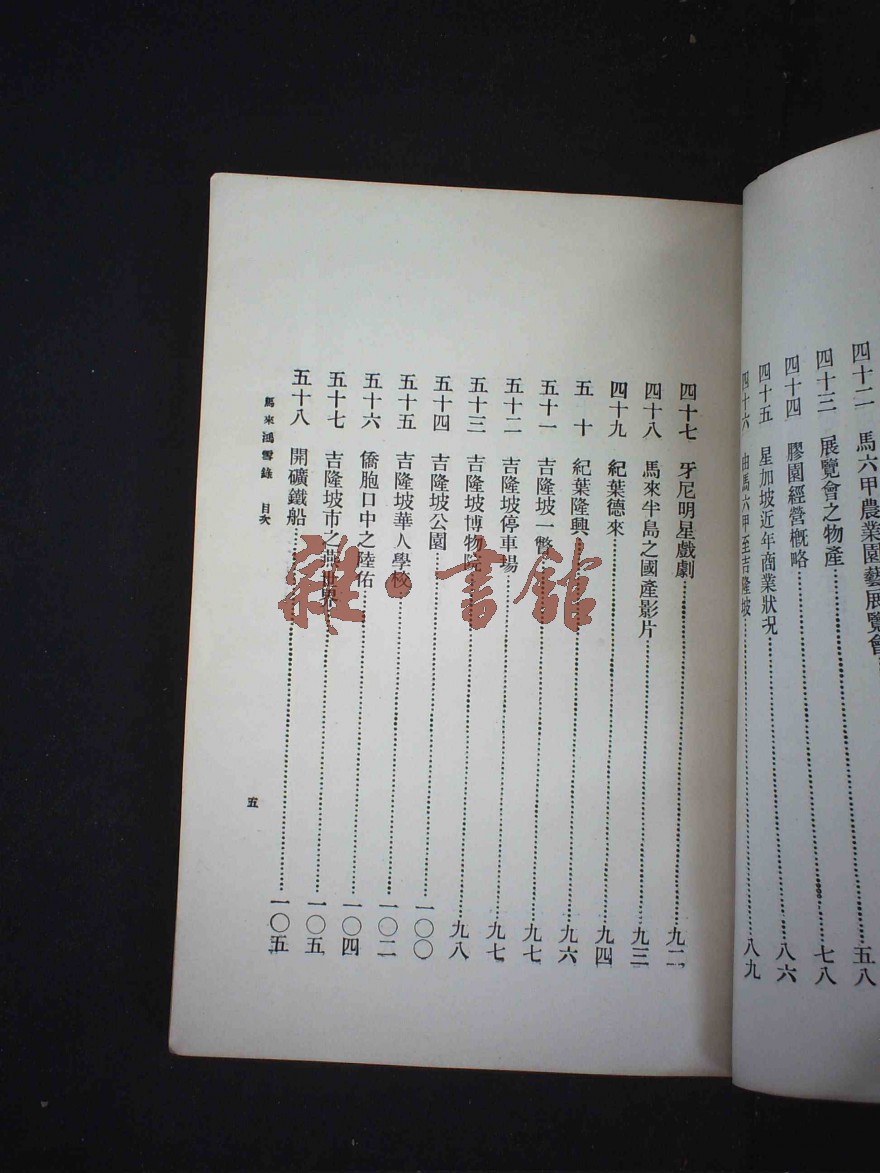 四十二 馬六甲農業園藝展覽會 五八
四十三 展覽會之物產 七八
四十四 膠園經營概略 八六
四十五 星加坡近年商業狀況
四十六 由馬六甲至吉隆坡 八九
四十七 牙尼明星戲劇 九二
四十八 馬來半島之國產影片 九三
四十九 紀葉德來 九四
五十 紀葉隆興 九六
五十一 吉隆坡一瞥 九七
五十二 吉隆坡停車場 九七
五十三 吉隆坡博物院 九八
五十四 吉隆坡公園 一〇〇
五十五 吉隆坡華人學校 一〇二
五十六 僑胞口中之陸佑 一〇四
五十七 吉隆坡市之燕世界 一〇五
五十八 開礦鐵船 一〇五
馬來鴻雪錄 目次 五
雜·書館